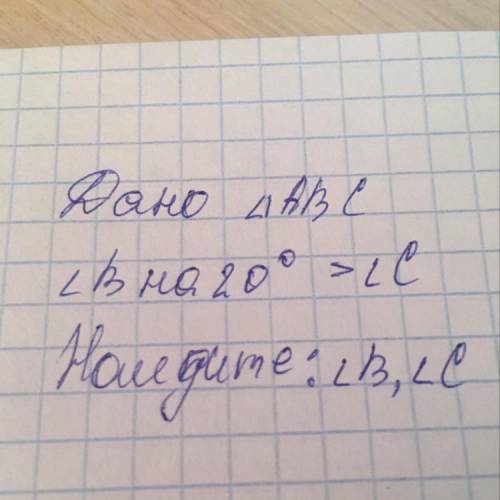 Дано △ABC
∠B на 20° > ∠C
Найдите: ∠B, ∠C